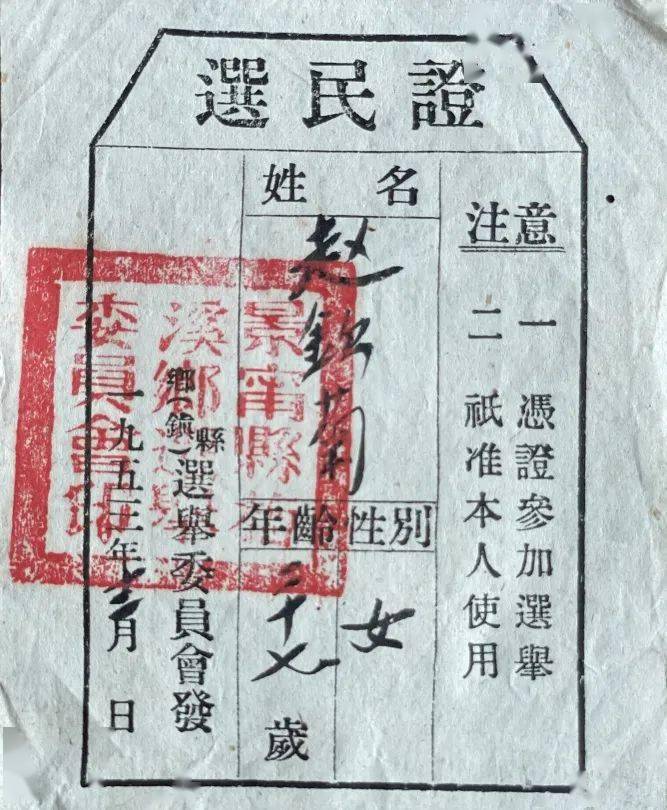 選民證
注意
一 憑證參加選舉
二 祇准本人使用
姓名
趙
性別
女
年齡
三十七
歲
縣
鄉(鎮)選舉委員會發
一九五三年十二月 日
景甯縣
溪鄉選舉
委員會